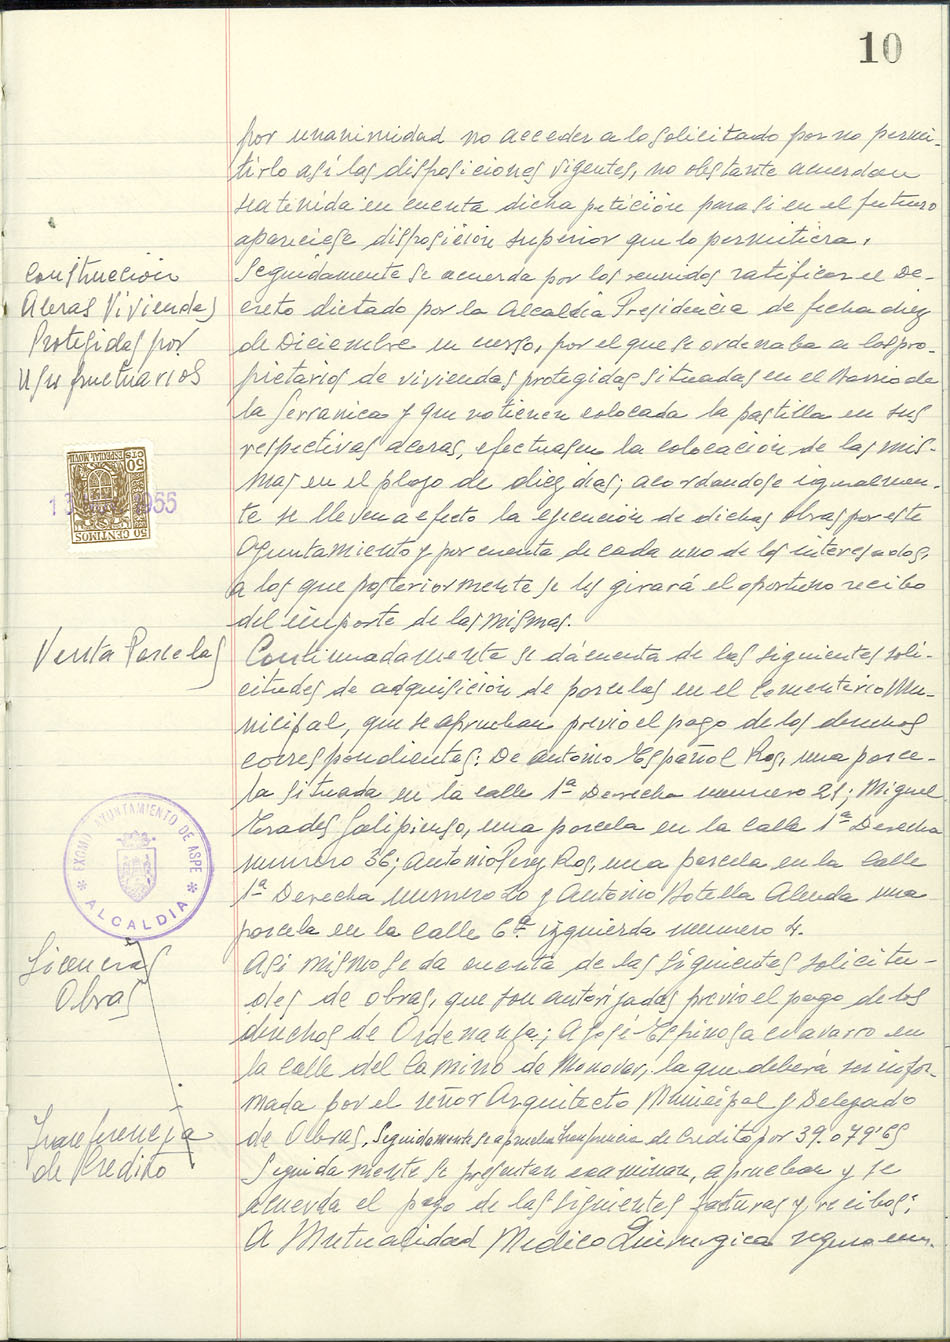 10
por unanimidad no acceder a lo solicitado por no permi-
tirlo así las disposiciones vigentes, no obstante acuerdan
sea tenida en cuenta dicha petición para si en el futuro
apareciese disposición superior que lo permitiera.
Construcción
Aceras Viviendas
Protegidas por
Usufructuarios
Seguidamente se acuerda por los reunidos ratificar el De-
creto dictado por la Alcaldia Presidencia de fecha diez
de Diciembre en curso, por el que se ordenaba a los pro-
pietarios de viviendas protegidas situadas en el Barrio de
la Serranica y que no tienen colocada la pastilla en sus
respectivas aceras, efectuasen la colocación de las mis-
mas en el plazo de diez dias; acordandose igualmen-
te se lleven a efecto la ejecución de dichas obras por este
Ayuntamiento y por cuenta de cada uno de los interesados,
a los que posteriormente se les girará el oportuno recibo
del importe de las mismas.
50 CTS
ESPECIAL MOVIL
50 CENTIMOS
1955
Venta Parcelas
Continuadamente se dá cuenta de las siguientes soli-
citudes de adquisición de parcelas en el Cementerio Mu-
nicipal, que se aprueban previo el pago de los derechos
correspondientes: De Antonio Español Ros, una parce-
la situada en la calle 1ª Derecha numero 21; Miguel
Prades Galipienso, una parcela en la calle 1ª Derecha
numero 36; Antonio Perez Ros, una parcela en la Calle
1ª Derecha numero 20 y Antonio Botella Alenda una
parcela en la Calle 6ª izquierda numero 4.
EXCMO. AYUNTAMIENTO DE ASPE
* ALCALDIA *
Licencias
Obras
Asi mismo se da cuenta de las siguientes solicitu-
des de obras, que son autorizadas previo el pago de los
derechos de Ordenanza; A José Espinosa Navarro en
la calle del Camino de Monovar, la que deberá ser infor-
mada por el señor Arquitecto Municipal y Delegado
de Obras, Seguidamente se aprueba transferencia de Credito por 39.079'65
Transferencia
de Credito
Seguidamente se presentan examinan, aprueban y se
acuerda el pago de las siguientes facturas y recibos:
A Mutualidad Medico Quirurgica